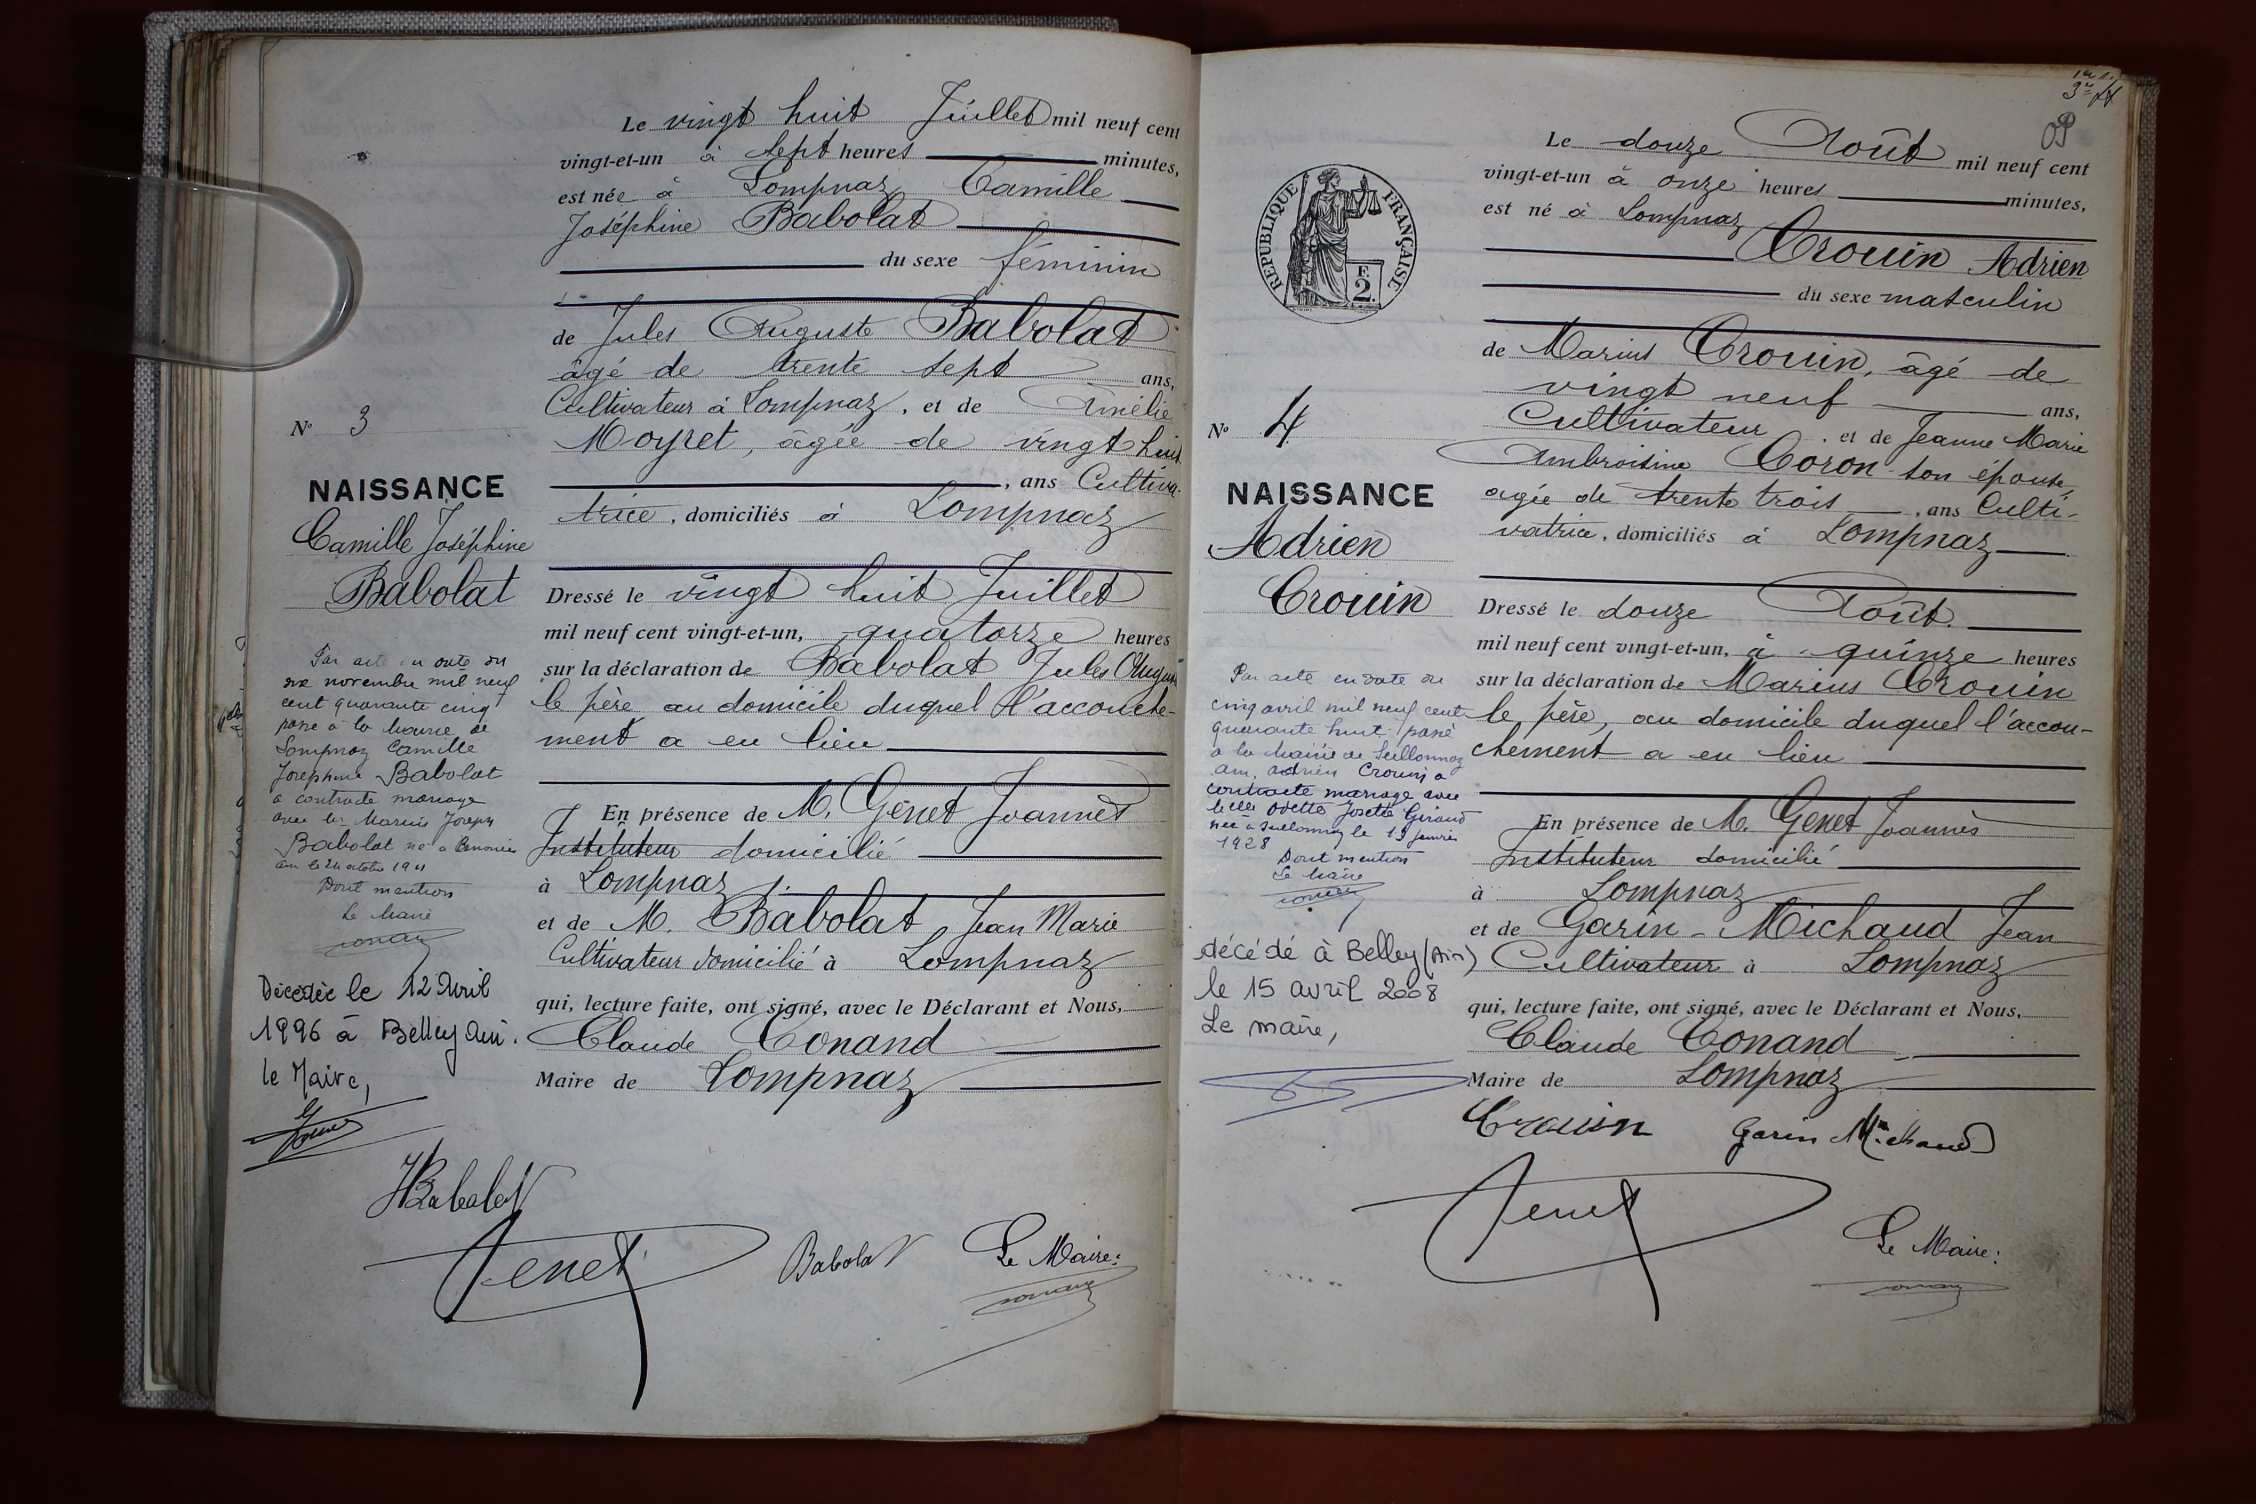 Le vingt huit Juillet mil neuf cent
vingt-et-un à sept heures minutes,
est née à Lompnaz Camille
Joséphine Babolat
du sexe féminin
de Jules Auguste Babolat
âgé de trente sept ans,
Cultivateur à Lompnaz, et de Amélie
Moyret, âgée de vingt huit
, ans Cultiva-
trice, domiciliés à Lompnaz
Dressé le vingt huit Juillet
mil neuf cent vingt-et-un, quatorze heures
sur la déclaration de Babolat Jules Auguste
le père au domicile duquel l'accouche-
ment a eu lieu
En présence de M. Genet Joannès
Instituteur domicilié
à Lompnaz
et de M. Babolat Jean Marie
Cultivateur domicilié à Lompnaz
qui, lecture faite, ont signé, avec le Déclarant et Nous,
Claude Conand
Maire de Lompnaz
N° 3
NAISSANCE
Camille Joséphine
Babolat
Par acte en date du
six novembre mil neuf
cent quarante cinq
passé à la Mairie de
Lompnaz Camille
Joséphine Babolat
a contracté mariage
avec Marius Joseph
Babolat né à
le 24 octobre 1911
Dont mention
Le Maire
Décédée le 12 Avril
1996 à Belley Ain.
le Maire,
JBabolat
Genet
Babolat
Le Maire:
Conand
3e
09
REPUBLIQUE FRANÇAISE
F.
2.
Le douze Août mil neuf cent
vingt-et-un à onze heures minutes,
est né à Lompnaz
Crouin Adrien
du sexe masculin
de Marius Crouin, âgé de
vingt neuf ans,
Cultivateur, et de Jeanne Marie
Ambroisine Coron son épouse,
agée de trente trois, ans Culti-
vatrice, domiciliés à Lompnaz
Dressé le douze Août.
mil neuf cent vingt-et-un, à quinze heures
sur la déclaration de Marius Crouin
le père, au domicile duquel l'accou-
chement a eu lieu
En présence de M. Genet Joannès
Instituteur domicilié
à Lompnaz
et de Garin-Michaud Jean
Cultivateur à Lompnaz
qui, lecture faite, ont signé, avec le Déclarant et Nous,
Claude Conand
Maire de Lompnaz
N° 4
NAISSANCE
Adrien
Crouin
Par acte en date du
cinq avril mil neuf cent
quarante huit passé
à la Mairie de Seillonnaz
Ain, Adrien Crouin a
contracté mariage avec
Odette Josette Giraud
née à Seillonnaz le 19 janvier
1928
Dont mention
Le Maire
décédé à Belley (Ain)
le 15 avril 2008
Le maire,
Crouin
Garin Michaud
Genet
Le Maire:
Conand